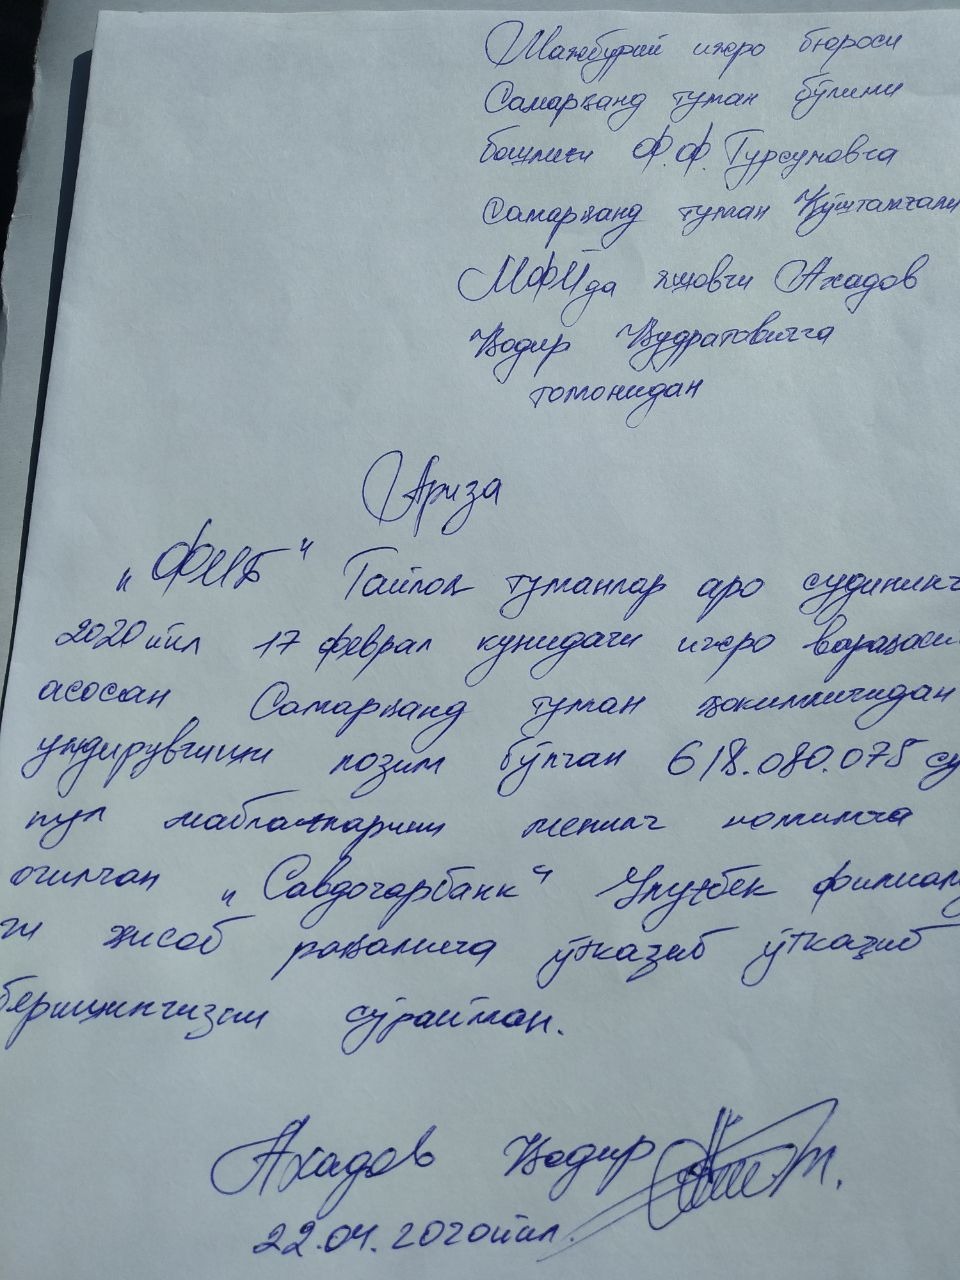 Мажбурий ижро бюроси
Самарқанд туман бўлими
бошлиғи Ф.Ф. Турсуновга
Самарқанд туман Қўштамғали
МФЙда яшовчи Ахадов
Қодир Қудратовичга
томонидан
Ариза
"ФИБ" Тайлоқ туманлар аро судининг
2020 йил 17 феврал кунидаги ижро варақаси
асосан Самарқанд туман ҳокимлигидан
ундирувчиши лозим бўлган 618.080.075
пул маблағларини менинг номимга
очилган "Савдогарбанк" Улуғбек филиал
ги ҳисоб рақамига ўтказиб ўтказиб
беришингизни сўрайман.
Ахадов Қодир
22.04.2020 йил.